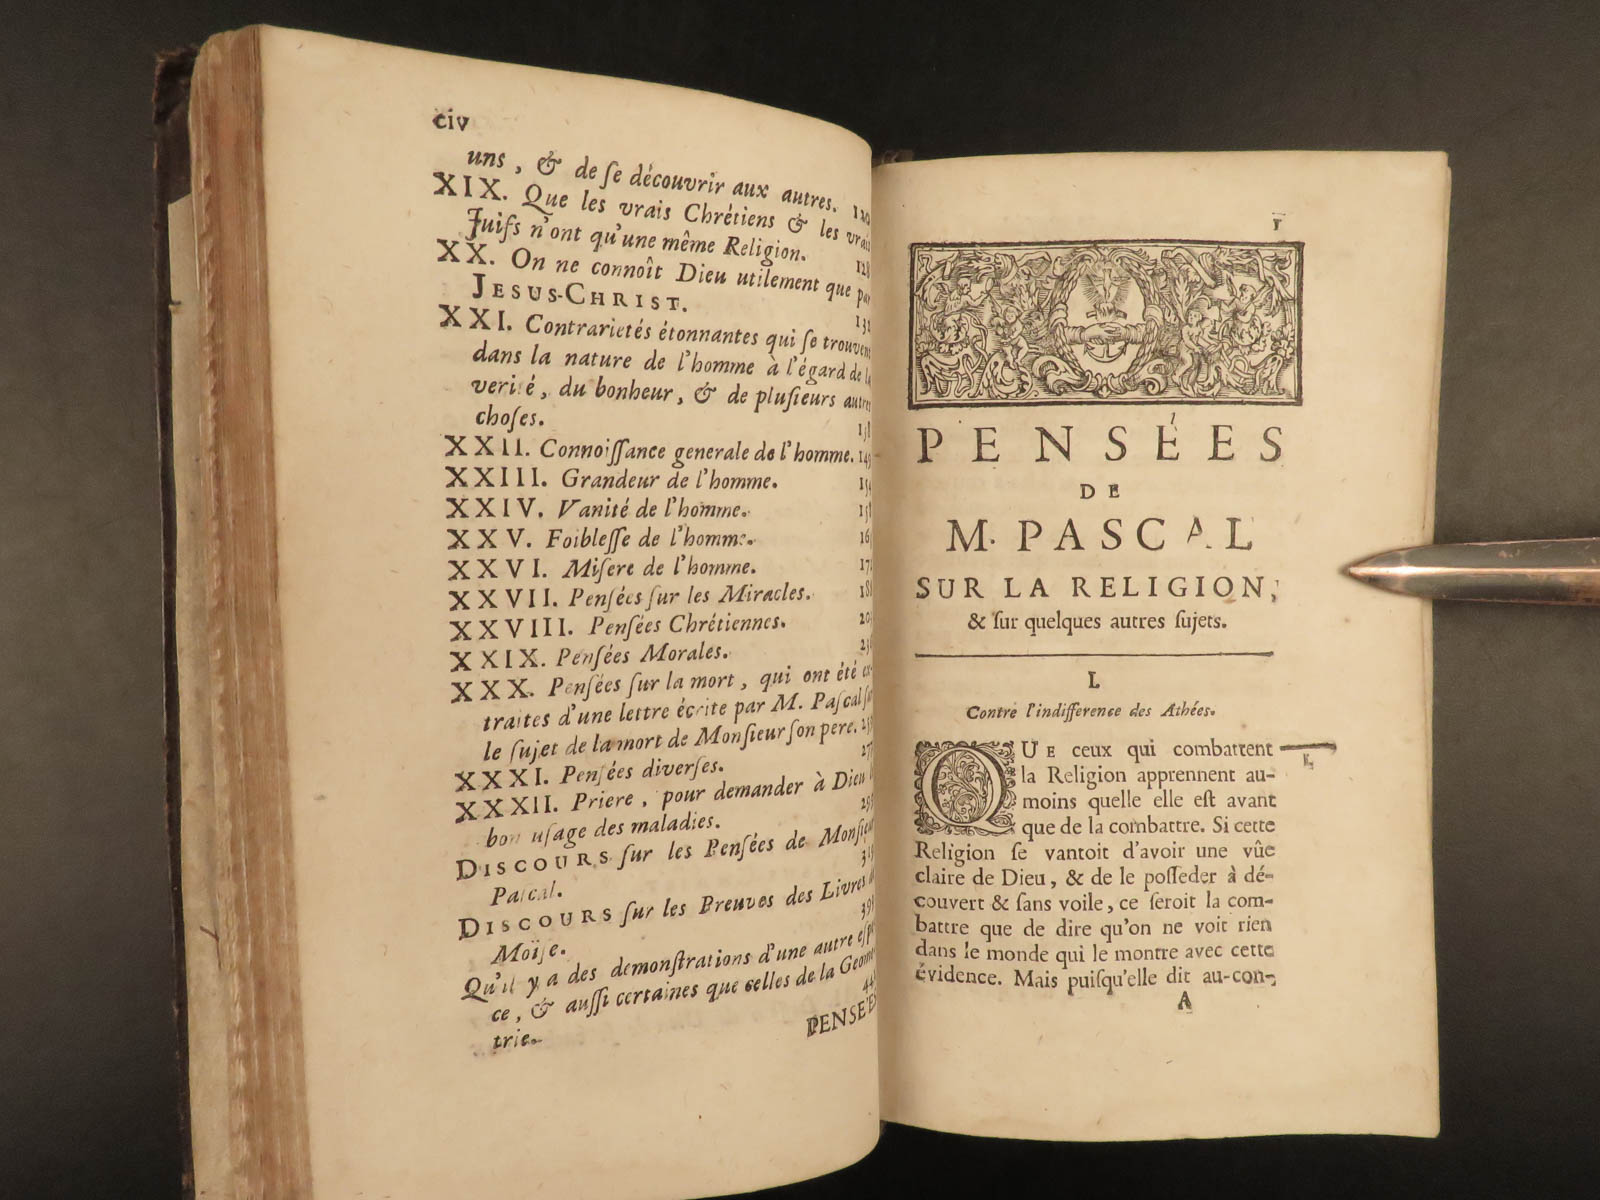 civ
uns, & de ſe découvrir aux autres. 120
XIX. Que les vrais Chrétiens & les vrais
Juifs n'ont qu'une même Religion. 128
XX. On ne connoît Dieu utilement que par
JESUS-CHRIST.
XXI. Contrarietés étonnantes qui ſe trouvent
dans la nature de l'homme à l'égard de la
verité, du bonheur, & de pluſieurs autres
choſes.
XXII. Connoiſſance generale de l'homme. 149
XXIII. Grandeur de l'homme.
XXIV. Vanité de l'homme.
XXV. Foibleſſe de l'homme.
XXVI. Miſere de l'homme.
XXVII. Penſées ſur les Miracles.
XXVIII. Penſées Chrétiennes.
XXIX. Penſées Morales.
XXX. Penſées ſur la mort, qui ont été ex-
traites d'une lettre écrite par M. Paſcal ſur
le ſujet de la mort de Monſieur ſon pere.
XXXI. Penſées diverſes.
XXXII. Priere, pour demander à Dieu le
bon uſage des maladies.
DISCOURS ſur les Penſées de Monſieur
Paſcal.
DISCOURS ſur les Preuves des Livres de
Moïſe.
Qu'il y a des demonſtrations d'une autre eſpe-
ce, & auſſi certaines que celles de la Geome-
trie.
PENSE'ES
1
PENSÉES
DE
M. PASCAL
SUR LA RELIGION,
& ſur quelques autres ſujets.
I.
Contre l'indifference des Athées.
QUE ceux qui combattent
la Religion apprennent au-
moins quelle elle eſt avant
que de la combattre. Si cette
Religion ſe vantoit d'avoir une vûe
claire de Dieu, & de le poſſeder à dé-
couvert & ſans voile, ce ſeroit la com-
battre que de dire qu'on ne voit rien
dans le monde qui le montre avec cette
évidence. Mais puiſqu'elle dit au-con-
A